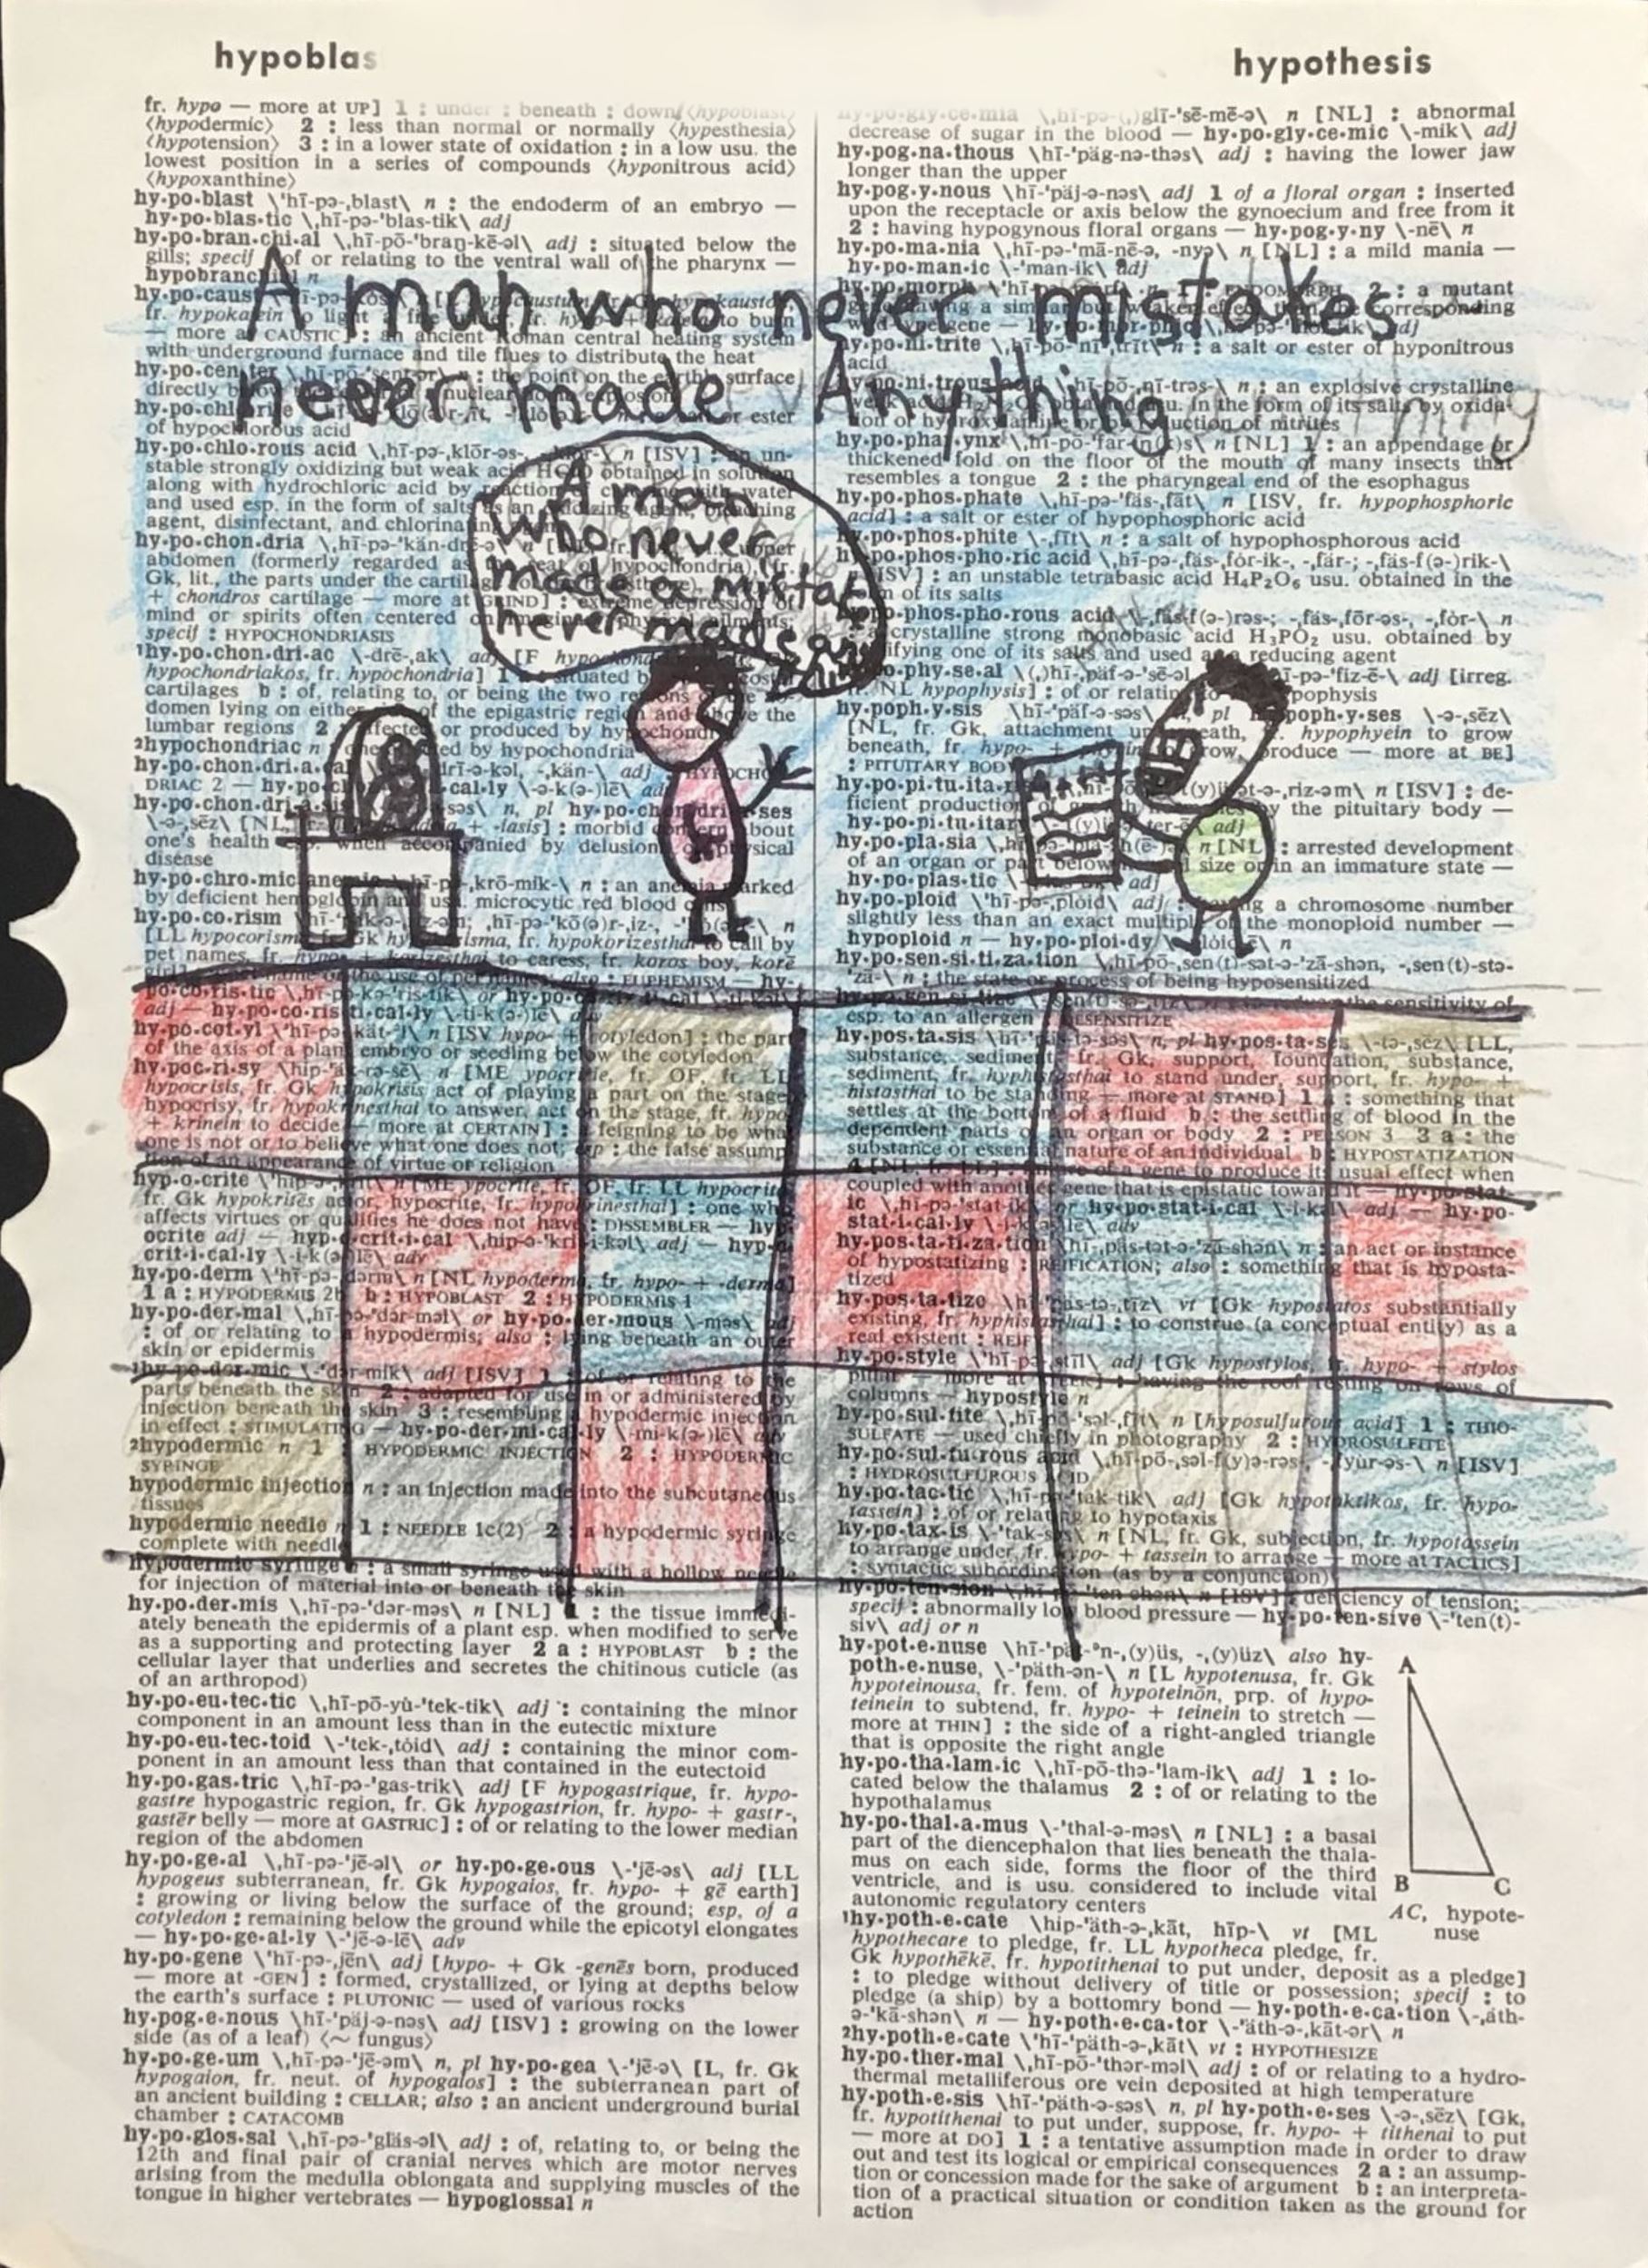 hypoblas
hypothesis
A man who never mistakes
never made Anything
A man
who never
made a mistak
never made an
fr. hypo — more at UP] 1 : under : beneath : down ⟨hypoblast⟩
⟨hypodermic⟩ 2 : less than normal or normally ⟨hypesthesia⟩
⟨hypotension⟩ 3 : in a lower state of oxidation : in a low usu. the
lowest position in a series of compounds ⟨hyponitrous acid⟩
⟨hypoxanthine⟩
hy·po·blast \'hī-pə-,blast\ n : the endoderm of an embryo —
hy·po·blas·tic \,hī-pə-'blas-tik\ adj
hy·po·bran·chi·al \,hī-pō-'braŋ-kē-əl\ adj : situated below the
gills; specif : of or relating to the ventral wall of the pharynx —
hypobranchial n
hy·po·caust
fr. hypokaiein to light a fire to burn
— more at CAUSTIC] : an ancient Roman central heating system
with underground furnace and tile flues to distribute the heat
hy·po·cen·ter \,hī-pō-'sent-ər\ n : the point on the earth's surface
directly below nuclear explosion
hy·po·chlo·rite or ester
of hypochlorous acid
hy·po·chlo·rous acid \,hī-pə-,klōr-əs- n [ISV] : an un-
stable strongly oxidizing but weak acid HClO obtained in solution
along with hydrochloric acid by reaction of chlorine with water
and used esp. in the form of salts as an oxidizing agent, bleaching
agent, disinfectant, and chlorinating
hy·po·chon·dria \,hī-pə-'kän-drē-ə\ n upper
abdomen (formerly regarded as the seat of hypochondria), fr.
Gk, lit., the parts under the cartilage
+ chondros cartilage — more at GRIND] : extreme depression of
mind or spirits often centered on imaginary physical ailments;
specif : HYPOCHONDRIASIS
¹hy·po·chon·dri·ac \-drē-,ak\ adj [F hypochondriaque
hypochondriakos, fr. hypochondria] 1 a : situated below
cartilages b : of, relating to, or being the two regions of the
domen lying on either side of the epigastric region and above the
lumbar regions 2 : affected or produced by hypochondria
²hypochondriac n : one affected by hypochondria
hy·po·chon·dri·a·cal adj : HYPOCHON-
DRIAC 2 — hy·po·chon·dri·a·cal·ly \-ə-k(ə-)lē\ adv
hy·po·chon·dri·a·sis n, pl hy·po·chon·dri·a·ses
\-ə-,sēz\ [NL, + -iasis] : morbid concern about
one's health esp. when accompanied by delusions of physical
disease
hy·po·chro·mic anemia \,hī-pə-,krō-mik-\ n : an anemia marked
by deficient hemoglobin and usu. microcytic red blood cells
hy·po·co·rism \hī-'päk-ə-,riz-əm; ,hī-pə-'kō(ə)r-,iz-, n
[LL hypocorisma, fr. Gk hypokorisma, fr. hypokorizesthai to call by
pet names, fr. hypo- + korizesthai to caress, fr. koros boy, korē
girl] : pet name or the use of pet names; also : EUPHEMISM — hy-
po·co·ris·tic \,hī-pə-kə-'ris-tik\ or hy·po·co·ris·ti·cal \-ti-kəl\
adj — hy·po·co·ris·ti·cal·ly \-ti-k(ə-)lē\ adv
hy·po·cot·yl \'hī-pə-,kät-ᵊl\ n [ISV hypo- + cotyledon] : the part
of the axis of a plant embryo or seedling below the cotyledon
hy·poc·ri·sy \hip-'äk-rə-sē\ n [ME ypocrisie, fr. OF, fr. LL
hypocrisis, fr. Gk hypokrisis act of playing a part on the stage,
hypocrisy, fr. hypokrinesthai to answer, act on the stage, fr. hypo-
+ krinein to decide — more at CERTAIN] : a feigning to be what
one is not or to believe what one does not; esp : the false assump-
tion of an appearance of virtue or religion
hyp·o·crite \'hip-ə-,krit\ n [ME ypocrite, fr. OF, fr. LL hypocrita,
fr. Gk hypokritēs actor, hypocrite, fr. hypokrinesthai] : one who
affects virtues or qualities he does not have : DISSEMBLER — hyp-
ocrite adj — hyp·o·crit·i·cal \,hip-ə-'krit-i-kəl\ adj — hyp·o-
crit·i·cal·ly \-i-k(ə-)lē\ adv
hy·po·derm \'hī-pə-,dərm\ n [NL hypoderma, fr. hypo- + -derma]
1 a : HYPODERMIS 2b b : HYPOBLAST 2 : HYPODERMIS 1
hy·po·der·mal \,hī-pə-'dər-məl\ or hy·po·der·mous \-məs\ adj
: of or relating to a hypodermis; also : lying beneath an outer
skin or epidermis
¹hy·po·der·mic \-'dər-mik\ adj [ISV] 1 : of or relating to the
parts beneath the skin 2 : adapted for use in or administered by
injection beneath the skin 3 : resembling a hypodermic injection
in effect : STIMULATING — hy·po·der·mi·cal·ly \-mi-k(ə-)lē\ adv
²hypodermic n 1 : HYPODERMIC INJECTION 2 : HYPODERMIC
SYRINGE
hypodermic injection n : an injection made into the subcutaneous
tissues
hypodermic needle n 1 : NEEDLE 1c(2) 2 : a hypodermic syringe
complete with needle
hypodermic syringe n : a small syringe used with a hollow needle
for injection of material into or beneath the skin
hy·po·der·mis \,hī-pə-'dər-məs\ n [NL] 1 : the tissue immedi-
ately beneath the epidermis of a plant esp. when modified to serve
as a supporting and protecting layer 2 a : HYPOBLAST b : the
cellular layer that underlies and secretes the chitinous cuticle (as
of an arthropod)
hy·po·eu·tec·tic \,hī-pō-yù-'tek-tik\ adj : containing the minor
component in an amount less than in the eutectic mixture
hy·po·eu·tec·toid \-'tek-,tòid\ adj : containing the minor com-
ponent in an amount less than that contained in the eutectoid
hy·po·gas·tric \,hī-pə-'gas-trik\ adj [F hypogastrique, fr. hypo-
gastre hypogastric region, fr. Gk hypogastrion, fr. hypo- + gastr-,
gastēr belly — more at GASTRIC] : of or relating to the lower median
region of the abdomen
hy·po·ge·al \,hī-pə-'jē-əl\ or hy·po·ge·ous \-'jē-əs\ adj [LL
hypogeus subterranean, fr. Gk hypogaios, fr. hypo- + gē earth]
: growing or living below the surface of the ground; esp. of a
cotyledon : remaining below the ground while the epicotyl elongates
— hy·po·ge·al·ly \-'jē-ə-lē\ adv
hy·po·gene \'hī-pə-,jēn\ adj [hypo- + Gk -genēs born, produced
— more at -GEN] : formed, crystallized, or lying at depths below
the earth's surface : PLUTONIC — used of various rocks
hy·pog·e·nous \hī-'päj-ə-nəs\ adj [ISV] : growing on the lower
side (as of a leaf) ⟨~ fungus⟩
hy·po·ge·um \,hī-pə-'jē-əm\ n, pl hy·po·gea \-'jē-ə\ [L, fr. Gk
hypogaion, fr. neut. of hypogaios] : the subterranean part of
an ancient building : CELLAR; also : an ancient underground burial
chamber : CATACOMB
hy·po·glos·sal \,hī-pə-'gläs-əl\ adj : of, relating to, or being the
12th and final pair of cranial nerves which are motor nerves
arising from the medulla oblongata and supplying muscles of the
tongue in higher vertebrates — hypoglossal n
hy·po·gly·ce·mia \,hī-pō-(,)glī-'sē-mē-ə\ n [NL] : abnormal
decrease of sugar in the blood — hy·po·gly·ce·mic \-mik\ adj
hy·pog·na·thous \hī-'päg-nə-thəs\ adj : having the lower jaw
longer than the upper
hy·pog·y·nous \hī-'päj-ə-nəs\ adj 1 of a floral organ : inserted
upon the receptacle or axis below the gynoecium and free from it
2 : having hypogynous floral organs — hy·pog·y·ny \-nē\ n
hy·po·ma·nia \,hī-pə-'mā-nē-ə, -nyə\ n [NL] : a mild mania —
hy·po·man·ic \-'man-ik\ adj
hy·po·morph \'hī-pə-,mȯrf\ n 1 : ENDOMORPH 2 : a mutant
gene having a similar but weaker effect than the corresponding
wild-type gene — hy·po·mor·phic adj
hy·po·ni·trite \,hī-pō-'nī-,trīt\ n : a salt or ester of hyponitrous
acid
hy·po·ni·trous acid \,hī-pō-,nī-trəs-\ n : an explosive crystalline
weak acid obtained usu. in the form of its salts by oxida-
tion of hydroxylamine or by reduction of nitrites
hy·po·phar·ynx \,hī-pō-'far-iŋ(k)s\ n [NL] 1 : an appendage or
thickened fold on the floor of the mouth of many insects that
resembles a tongue 2 : the pharyngeal end of the esophagus
hy·po·phos·phate \,hī-pə-'fäs-,fāt\ n [ISV, fr. hypophosphoric
acid] : a salt or ester of hypophosphoric acid
hy·po·phos·phite \-,fīt\ n : a salt of hypophosphorous acid
hy·po·phos·pho·ric acid \,hī-pə-,fäs-,fór-ik-, -,fär-; -,fäs-f(ə-)rik-\
[ISV] : an unstable tetrabasic acid H₄P₂O₆ usu. obtained in the
form of its salts
hy·po·phos·pho·rous acid \-,fäs-f(ə-)rəs-; -,fäs-,fōr-əs-, -,fòr-\ n
: a crystalline strong monobasic acid H₃PO₂ usu. obtained by
acidifying one of its salts and used as a reducing agent
hy·po·phy·se·al \(,)hī-,päf-ə-'sē-əl hī-pə-'fiz-ē-\ adj [irreg.
fr. NL hypophysis] : of or relating to the hypophysis
hy·poph·y·sis \hī-'päf-ə-səs\ n, pl hy·poph·y·ses \-ə-,sēz\
[NL, fr. Gk, attachment underneath, fr. hypophyein to grow
beneath, fr. hypo- + phyein to grow, produce — more at BE]
: PITUITARY BODY
hy·po·pi·tu·ita·rism \,hī-pō-pə-'t(y)ü-ət-ə-,riz-əm\ n [ISV] : de-
ficient production of growth hormones by the pituitary body —
hy·po·pi·tu·itary adj
hy·po·pla·sia n [NL] : arrested development
of an organ or part below normal size or in an immature state —
hy·po·plas·tic adj
hy·po·ploid \'hī-pə-,plòid\ adj : having a chromosome number
slightly less than an exact multiple of the monoploid number —
hypoploid n — hy·po·ploi·dy n
hy·po·sen·si·ti·za·tion \,hī-pō-,sen(t)-sət-ə-'zā-shən, -,sen(t)-stə-
'zā-\ n : the state or process of being hyposensitized
hy·po·sen·si·tize the sensitivity of
esp. to an allergen : DESENSITIZE
hy·pos·ta·sis \hī-'päs-tə-səs\ n, pl hy·pos·ta·ses \-tə-,sēz\ [LL,
substance, sediment, fr. Gk, support, foundation, substance,
sediment, fr. hyphistasthai to stand under, support, fr. hypo- +
histasthai to be standing — more at STAND] 1 a : something that
settles at the bottom of a fluid b : the settling of blood in the
dependent parts of an organ or body 2 : PERSON 3 3 a : the
substance or essential nature of an individual b : HYPOSTATIZATION
4 of a gene to produce its usual effect when
coupled with another gene that is epistatic toward it — hy·po·stat-
ic \,hī-pə-'stat-ik\ or hy·po·stat·i·cal \-i-kəl\ adj — hy·po-
stat·i·cal·ly \-i-k(ə-)lē\ adv
hy·pos·ta·ti·za·tion \hī-,päs-tət-ə-'zā-shən\ n : an act or instance
of hypostatizing : REIFICATION; also : something that is hyposta-
tized
hy·pos·ta·tize \hī-'päs-tə-,tīz\ vt [Gk hypostatos substantially
existing, fr. hyphistasthai] : to construe (a conceptual entity) as a
real existent : REIFY
hy·po·style \'hī-pə-,stīl\ adj [Gk hypostylos, fr. hypo- + stylos
pillar — more at STEER] : having the roof resting on rows of
columns — hypostyle n
hy·po·sul·fite \,hī-pō-'səl-,fīt\ n [hyposulfurous acid] 1 : THIO-
SULFATE — used chiefly in photography 2 : HYDROSULFITE
hy·po·sul·fu·rous acid \,hī-pō-,səl-f(y)ə-rəs-, -,fyùr-əs-\ n [ISV]
: HYDROSULFUROUS ACID
hy·po·tac·tic \,hī-pə-'tak-tik\ adj [Gk hypotaktikos, fr. hypo-
tassein] : of or relating to hypotaxis
hy·po·tax·is \-'tak-səs\ n [NL, fr. Gk, subjection, fr. hypotassein
to arrange under, fr. hypo- + tassein to arrange — more at TACTICS]
: syntactic subordination (as by a conjunction)
hy·po·ten·sion \,hī-pō-'ten-chən\ n [ISV] : deficiency of tension;
specif : abnormally low blood pressure — hy·po·ten·sive \-'ten(t)-
siv\ adj or n
hy·pot·e·nuse \hī-'pät-ᵊn-,(y)üs, -,(y)üz\ also hy-
poth·e·nuse, \-'päth-ən-\ n [L hypotenusa, fr. Gk
hypoteinousa, fr. fem. of hypoteinōn, prp. of hypo-
teinein to subtend, fr. hypo- + teinein to stretch —
more at THIN] : the side of a right-angled triangle
that is opposite the right angle
hy·po·tha·lam·ic \,hī-pō-thə-'lam-ik\ adj 1 : lo-
cated below the thalamus 2 : of or relating to the
hypothalamus
hy·po·thal·a·mus \-'thal-ə-məs\ n [NL] : a basal
part of the diencephalon that lies beneath the thala-
mus on each side, forms the floor of the third
ventricle, and is usu. considered to include vital
autonomic regulatory centers
A
B
C
AC, hypote-
nuse
¹hy·poth·e·cate \hip-'äth-ə-,kāt, hīp-\ vt [ML
hypothecare to pledge, fr. LL hypotheca pledge, fr.
Gk hypothēkē, fr. hypotithenai to put under, deposit as a pledge]
: to pledge without delivery of title or possession; specif : to
pledge (a ship) by a bottomry bond — hy·poth·e·ca·tion \-,äth-
ə-'kā-shən\ n — hy·poth·e·ca·tor \-'äth-ə-,kāt-ər\ n
²hy·poth·e·cate \'hī-'päth-ə-,kāt\ vt : HYPOTHESIZE
hy·po·ther·mal \,hī-pō-'thər-məl\ adj : of or relating to a hydro-
thermal metalliferous ore vein deposited at high temperature
hy·poth·e·sis \hī-'päth-ə-səs\ n, pl hy·poth·e·ses \-ə-,sēz\ [Gk,
fr. hypotithenai to put under, suppose, fr. hypo- + tithenai to put
— more at DO] 1 : a tentative assumption made in order to draw
out and test its logical or empirical consequences 2 a : an assump-
tion or concession made for the sake of argument b : an interpreta-
tion of a practical situation or condition taken as the ground for
action